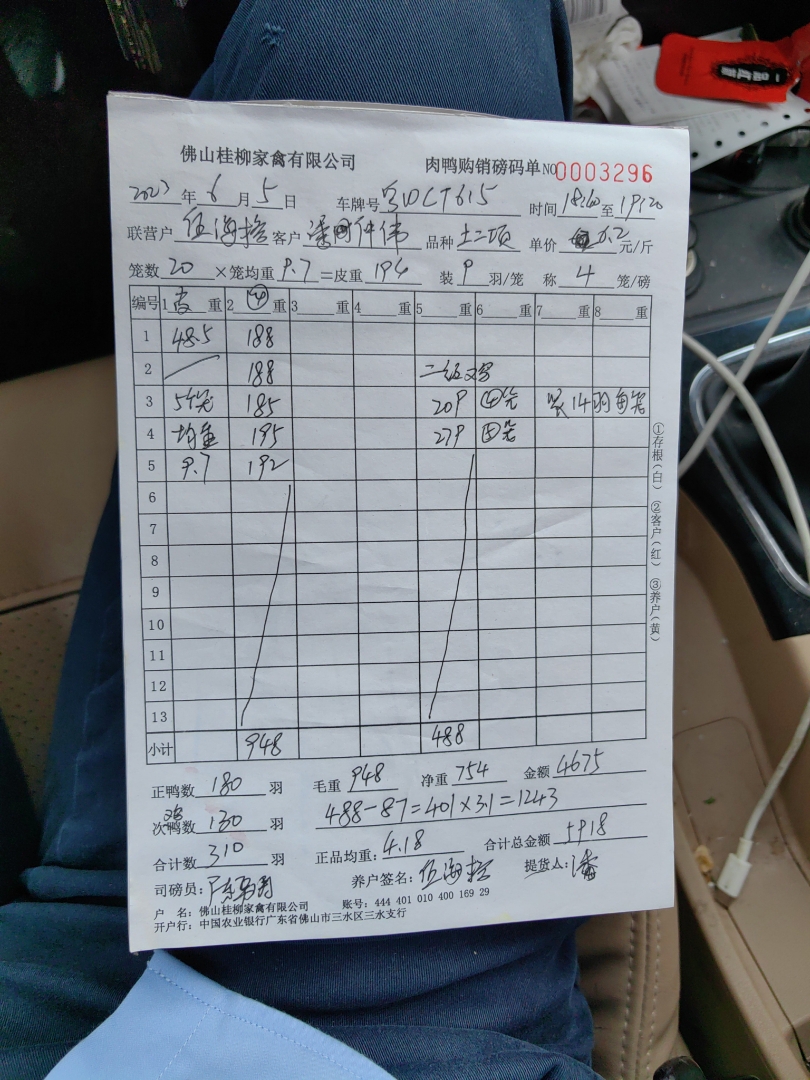 佛山桂柳家禽有限公司 肉鸭购销磅码单 NO 0003296
2023年6月5日 车牌号 DCT615 时间 18:40 至 19:20
联营户 伍海 客户 品种 土二项 单价 6.2 元/斤
笼数 20 ×笼均重 9.7 =皮重 194 装 9 羽/笼 称 4 笼/磅
编号 1 皮 重 2 ④ 重 3 重 4 重 5 重 6 重 7 重 8 重
1 48.5 188
2 188 二级鸡
3 5个笼 185 209 ④笼 装14羽每笼
4 均重 195 279 ⑤笼
5 9.7 192
6
7
8
9
10
11
12
13
小计 948 488
正鸭数 180 羽 毛重 948 净重 754 金额 4675
次鸭数 鸡 130 羽 488-87=401×3.1=1243
合计数 310 羽 正品均重: 4.18 合计总金额 5918
司磅员: 养户签名: 伍海 提货人: 潘
户 名: 佛山桂柳家禽有限公司 账号: 444 401 010 400 169 29
开户行: 中国农业银行广东省佛山市三水区三水支行
①存根(白) ②客户(红) ③养户(黄)